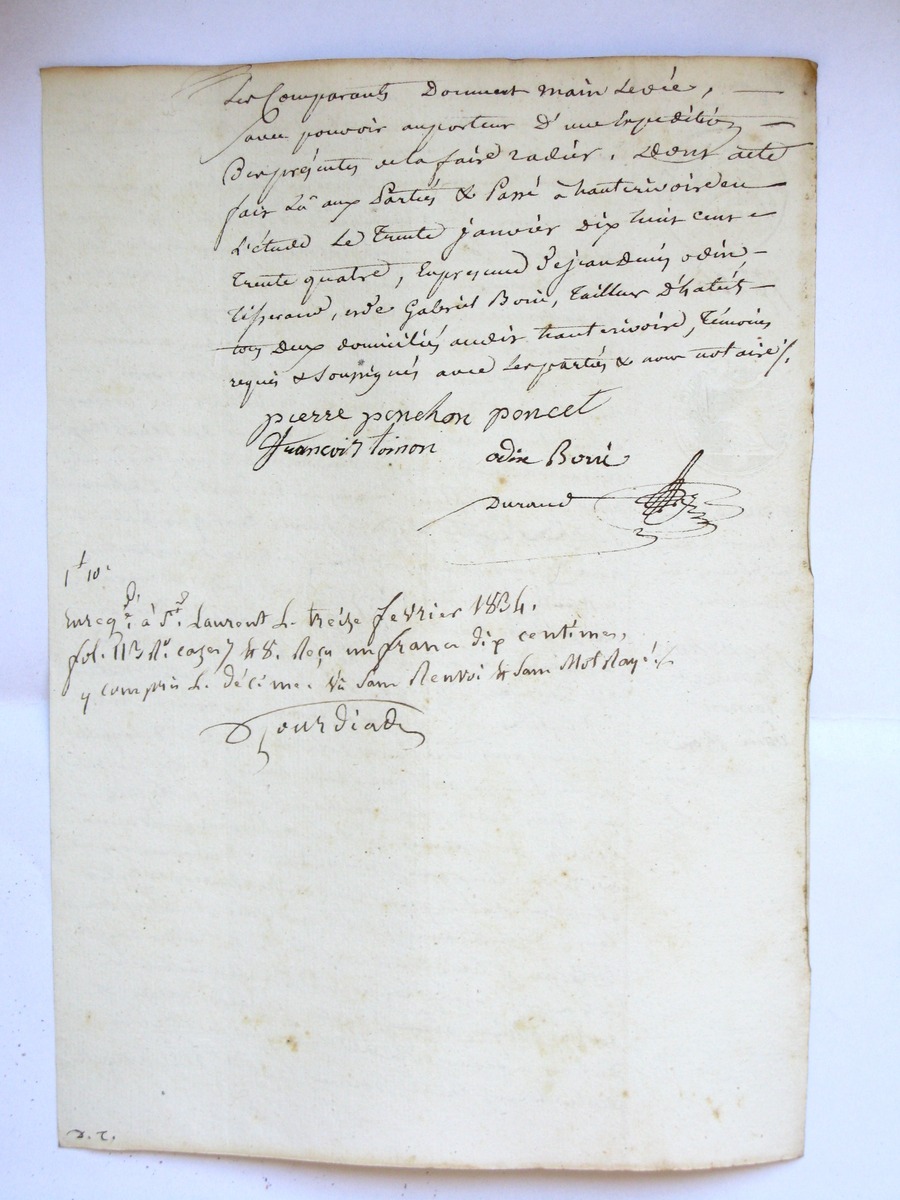 Les Comparants Donnent main Levée,
avec pouvoir auporteur D'une Expedition
Des présentes de la faire radier, Dont acte
fait Lû aux Parties & Passé à hauterivoire en
L'étude Le Trente janvier Dix huit cent
Trente quatre, En presence De jean Denis odin
Tisserand, et de Gabriel Borie, Tailleur D'habits
tous Deux domiciliés audit hauterivoire, Témoins
requis & Soussignés avec Les parties & nous notaire
pierre ponchon poncet
françois toinon
odin Borie
Durand
1f 10c
Enregt. à St. Laurent Le treize fevrier 1834.
fol. 113 Ro. cazes 7 & 8. Reçu un franc dix centimes,
y compris Le décime. Vû Sans Renvoi & Sans Mot Rayé
Gourdiat
D. T.